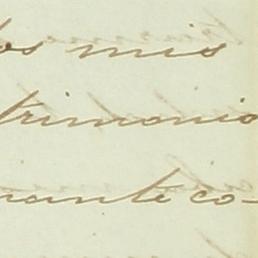 os mis
trimonio
nante co-